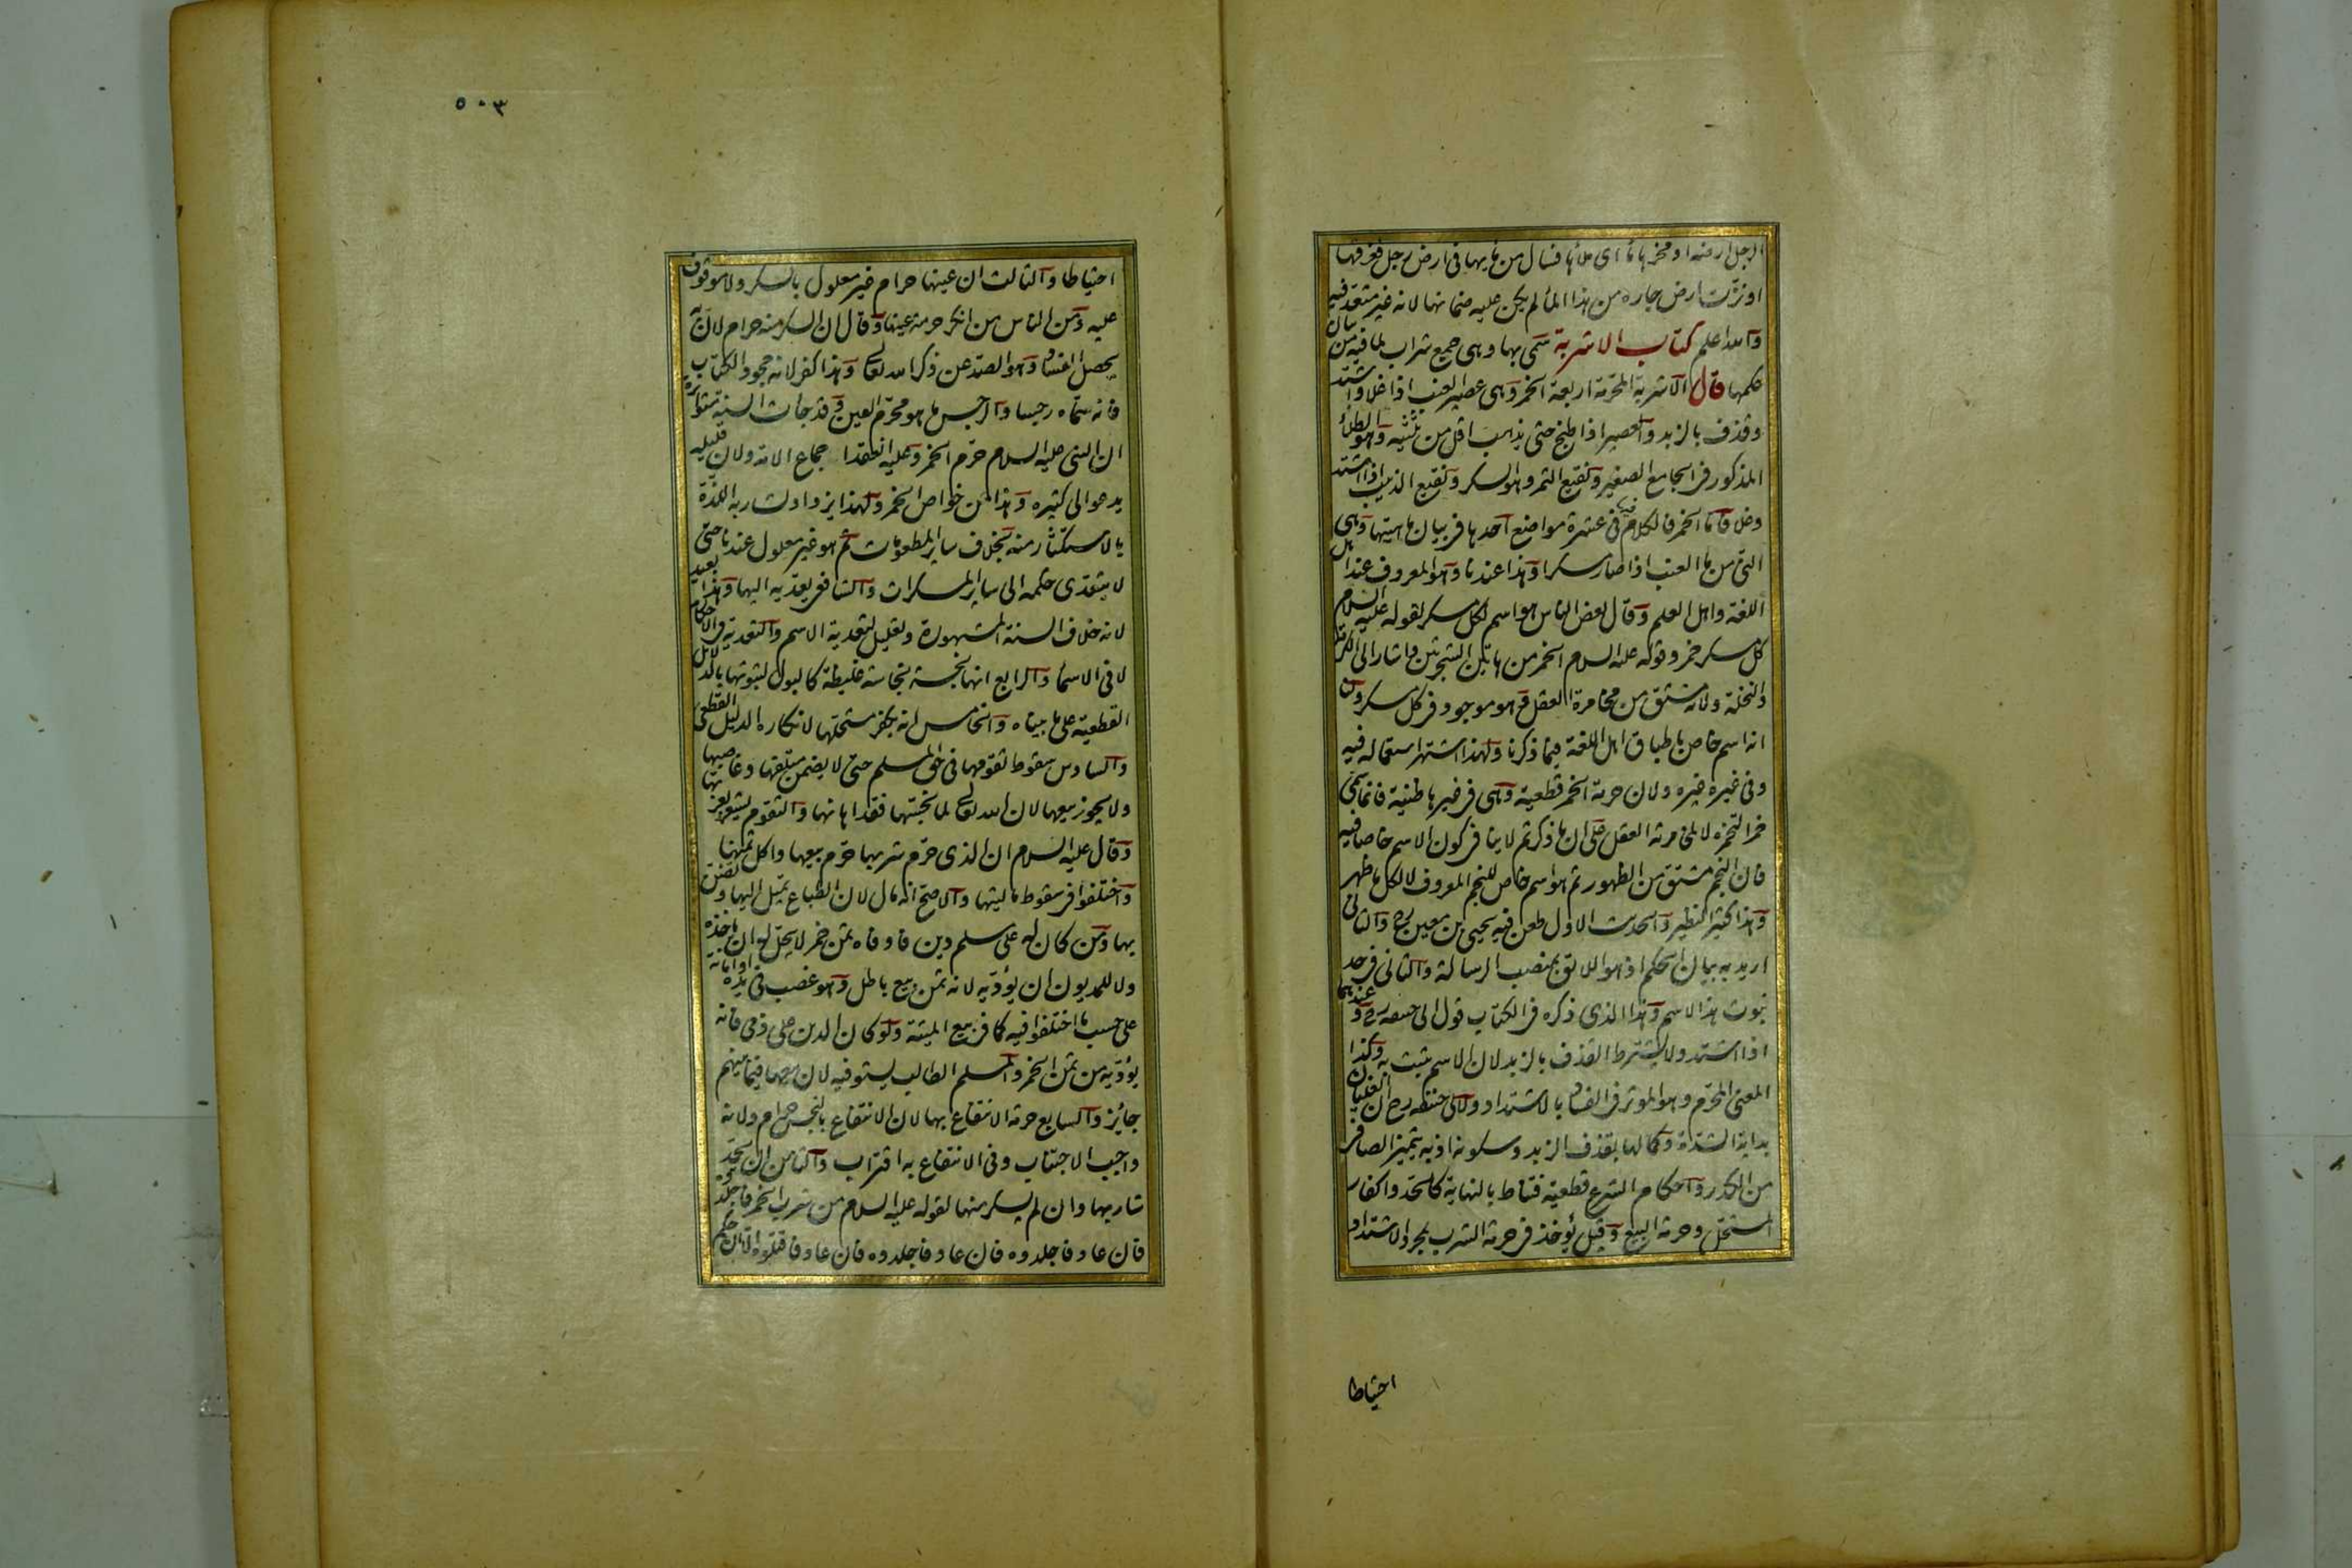 الرجل ارضه او مخرها ماء اى ملأها فسال من مائها فى ارض رجل فغرقها
او نزّت ارض جاره من هذا الماء لم يكن عليه ضمانها لانه غير متعد فيه
والله اعلم كتاب الاشربة سمى بها وهى جمع شراب لما فيه من بيان
حكمها قال الاشربة المحرمة اربعة الخمر وهى عصير العنب اذا غلا واشتد
وقذف بالزبد والعصير اذا طبخ حتى يذهب اقل من ثلثيه وهو الطلاء
المذكور فى الجامع الصغير ونقيع التمر وهو السكر ونقيع الزبيب اذا اشتد
وغلا اما الخمر فالكلام فيها فى عشرة مواضع احدها فى بيان ماهيتها وهى
التى من ماء العنب اذا صار مسكرا وهذا عندنا وهو المعروف عند اهل
اللغة واهل العلم وقال بعض الناس هو اسم لكل مسكر لقوله عليه السلام
كل مسكر خمر وقوله عليه السلام الخمر من هاتين الشجرتين واشار الى الكرمة
والنخلة ولانه مشتق من مخامرة العقل وهو موجود فى كل مسكر ولنا
انه اسم خاص باطباق اهل اللغة فيما ذكرنا ولهذا اشتهر استعماله فيه
وفى غيره غيره ولان حرمة الخمر قطعية وهى فى غيرها ظنية فانما سمى
خمرا لتخمره لا لمخامرته العقل على ان ما ذكرتم لا ينافى كون الاسم خاصا فيه
فان النجم مشتق من الظهور ثم هو اسم خاص للنجم المعروف لا لكل ما ظهر
وهذا كثير النظير والحديث الاول طعن فيه يحيى بن معين رح والثانى
اريد به بيان الحكم اذ هو اللائق بمنصب الرسالة والثانى فى حد
ثبوت هذا الاسم وهذا الذى ذكره فى الكتاب قول ابى حنيفه رح وعندهما
اذا اشتد ولا يشترط القذف بالزبد لان الاسم يثبت به وكذا
المعنى المحرم وهو المؤثر فى الفساد بالاشتداد ولابى حنيفه رح ان الغليان
بداية الشدة وكمالها بقذف الزبد وسكونه اذ به يتميز الصافى
من الكدر واحكام الشرع قطعية فتناط بالنهاية كالحد واكفار
المستحل وحرمة البيع وقيل يؤخذ فى حرمة الشرب بمجرد الاشتداد
احتياطا
٥٠٣
احتياطا والثالث ان عينها حرام غير معلول بالسكر ولا موقوف
عليه ومن الناس من انكر حرمة عينها وقال ان السكر منه حرام لان به
يحصل الفساد وهو الصد عن ذكر الله تعالى وهذا كفر لانه جحود الكتاب
فانه سماه رجسا والرجس ما هو محرم العين وقد جات السنة متواترة
ان النبى عليه السلام حرم الخمر وعليه انعقدا جماع الامة ولان قليله
يدعو الى كثيره وهذا من خواص الخمر ولهذا يزداد لشاربه اللذة
بالاستكثار منه بخلاف ساير المطعومات ثم هو غير معلول عندنا حتى
لا يتعدى حكمه الى ساير المسكرات والشافعى يعديه اليها وهذا بعيد
لانه خلاف السنة المشهورة وتعليل لتعدية الاسم والتعدية فى الاحكام
لا فى الاسماء والرابع انها نجسة نجاسة غليظة كالبول لثبوتها بالدلائل
القطعية على ما بيناه والخامس انه يكفر مستحلها لانكاره الدليل القطعى
والسادس سقوط تقومها فى حق المسلم حتى لا يضمن متلفها وغاصبها
ولا يجوز بيعها لان الله تعالى لما نجستها فقد اهانها والتقوم يشعر بعزتها
وقال عليه السلام ان الذى حرم شربها حرم بيعها واكل ثمنها
واختلفوا فى سقوط ماليتها والاصح انه مال لان الطباع تميل اليها وتضن
بها ومن كان له على مسلم دين فاوفاه ثمن خمر لا يحل له ان ياخذه
ولا للمديون ان يؤديه لانه ثمن بيع باطل وهو غصب فى يده او امانة
على حسب ما اختلفوا فيه كما فى بيع الميتة ولو كان الدين على ذمى فانه
يؤديه من ثمن الخمر والمسلم الطالب يستوفيه لان بيعها فيما بينهم
جائز والسابع حرمة الانتفاع بها لان الانتفاع بالنجس حرام ولانه
واجب الاجتناب وفى الانتفاع به اقتراب والثامن ان يحد
شاربها وان لم يسكر منها لقوله عليه السلام من شرب الخمر فاجلدوه
فان عاد فاجلدوه فان عاد فاجلدوه فان عاد فاقتلوه الا ان حكم